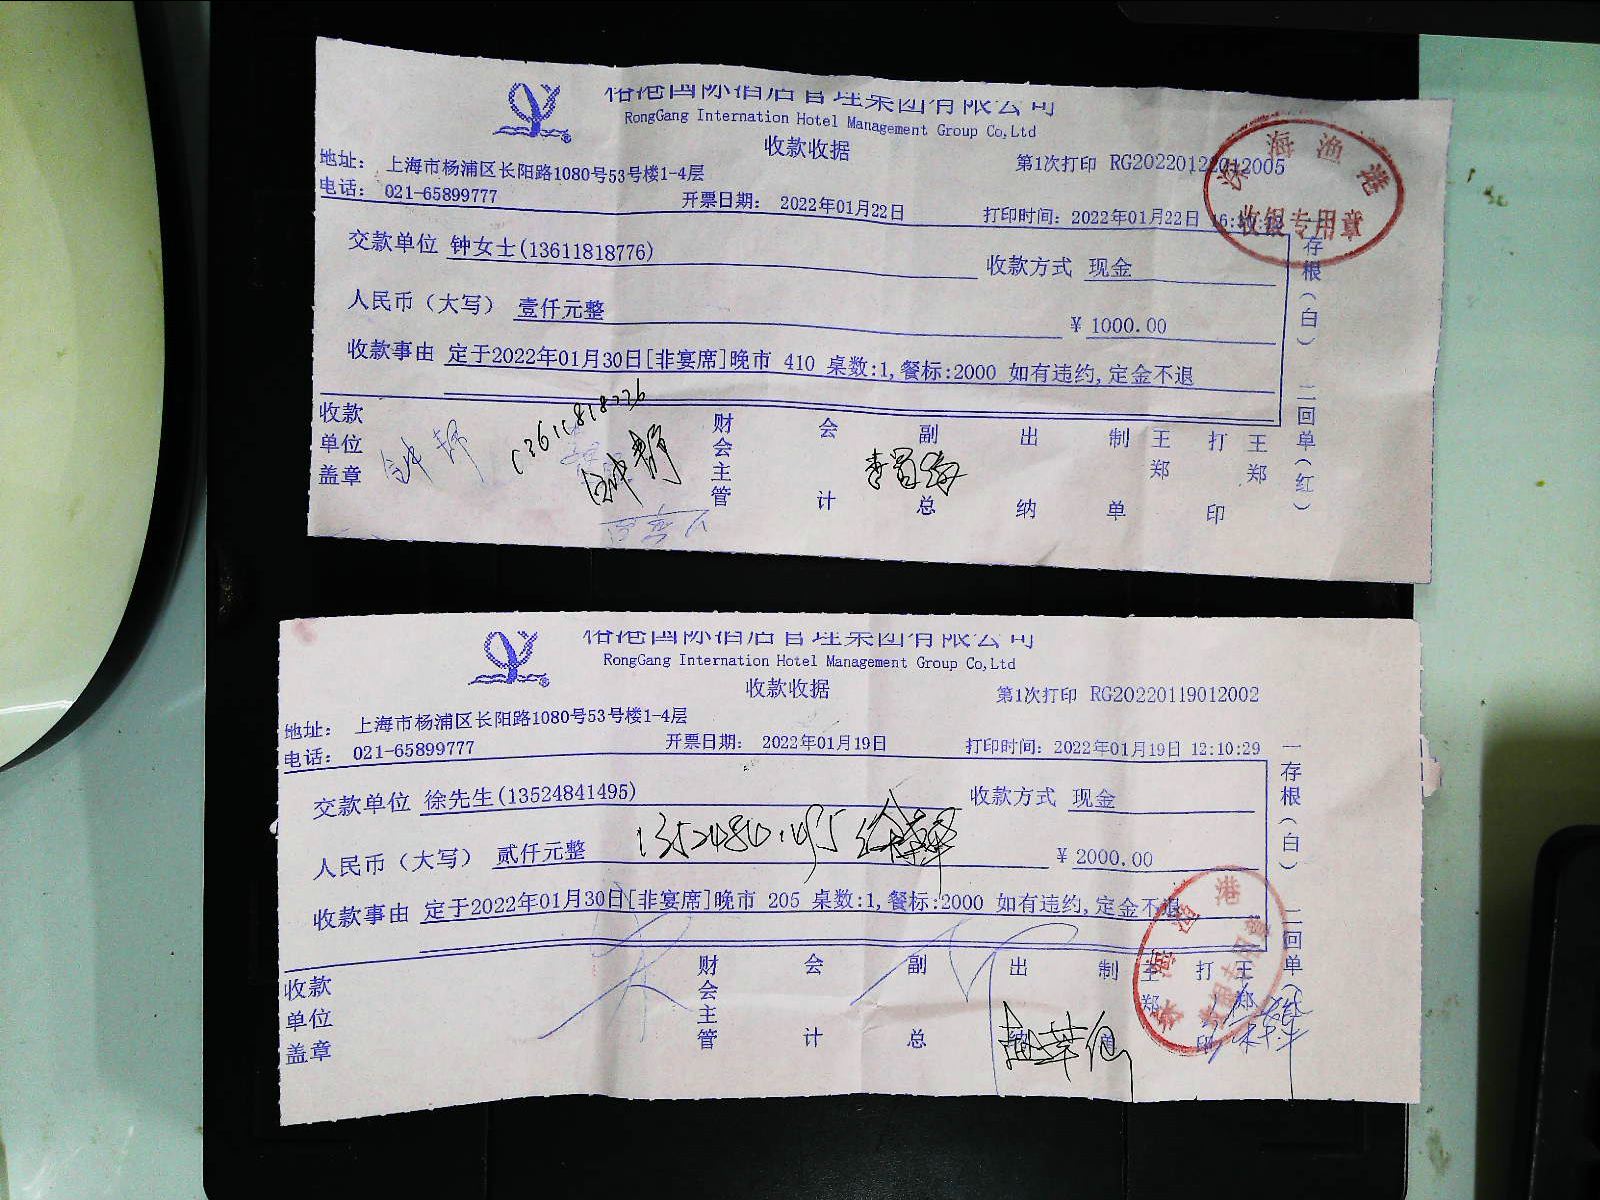 国际酒店管理集团有限公司
RongGang Internation Hotel Management Group Co,Ltd
收款收据
第1次打印 RG20220122012005
地址： 上海市杨浦区长阳路1080号53号楼1-4层
电话： 021-65899777
开票日期： 2022年01月22日
打印时间：2022年01月22日
海渔港
收银专用章
交款单位 钟女士(13611818776)
收款方式 现金
人民币（大写） 壹仟元整
¥ 1000.00
收款事由 定于2022年01月30日[非宴席]晚市 410 桌数:1,餐标:2000 如有违约,定金不退
存根(白) 二回单(红)
收款单位盖章
13611818776
财会主管
会计
副总
出纳
制单
王郑
打印
王郑
国际酒店管理集团有限公司
RongGang Internation Hotel Management Group Co,Ltd
收款收据
第1次打印 RG20220119012002
地址： 上海市杨浦区长阳路1080号53号楼1-4层
电话： 021-65899777
开票日期： 2022年01月19日
打印时间：2022年01月19日 12:10:29
交款单位 徐先生(13524841495)
收款方式 现金
人民币（大写） 贰仟元整
¥ 2000.00
收款事由 定于2022年01月30日[非宴席]晚市 205 桌数:1,餐标:2000 如有违约,定金不退
一存根(白) 二回单
收款单位盖章
财会主管
会计
副总
出
制
王郑
打印
王郑